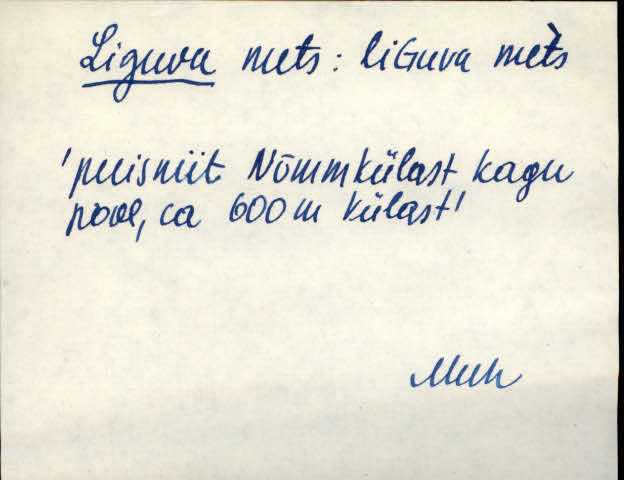 Liguva mets : liGuva metš
'puisniit Nõmmkülast kagu
pool, ca 600 m külast'
Muh